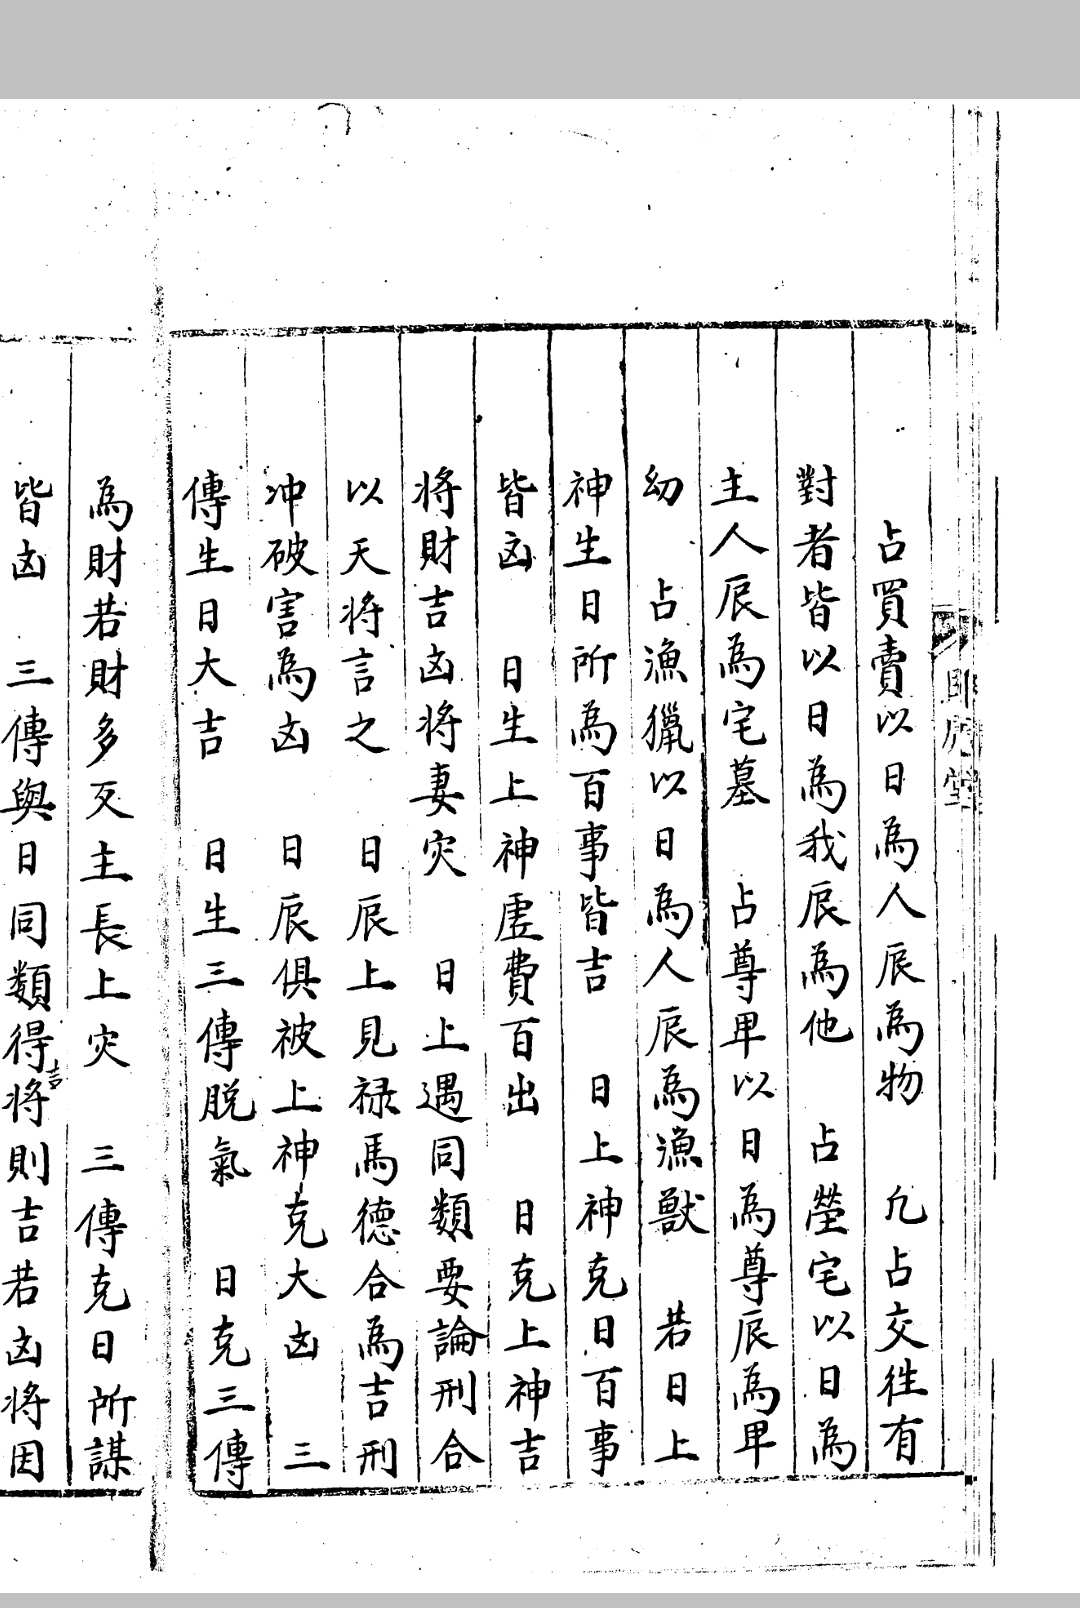 占買賣以日為人辰為物　凢占交徃有
對者皆以日為我辰為他　占塋宅以日為
主人辰為宅墓　占尊卑以日為尊辰為卑
幼　占漁獵以日為人辰為漁獸　若日上
神生日所為百事皆吉　日上神克日百事
皆凶　日生上神虛費百出　日克上神吉
将財吉凶将妻灾　日上遇同類要論刑合
以天将言之　日辰上見禄馬德合為吉刑
冲破害為凶　日辰俱被上神克大凶　三
傳生日大吉　日生三傳脱氣　日克三傳
為財若財多反主長上灾　三傳克日所謀
皆凶　三傳與日同類得吉将則吉若凶将因